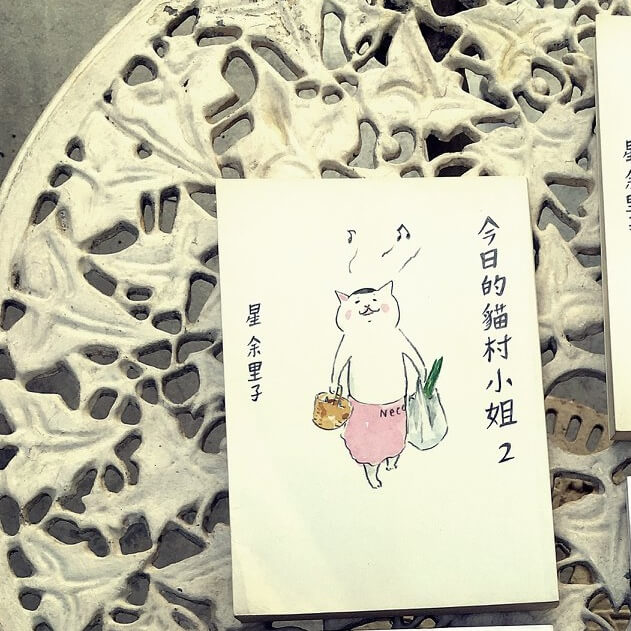 今日的貓村小姐 2
星 余里子
星 余里